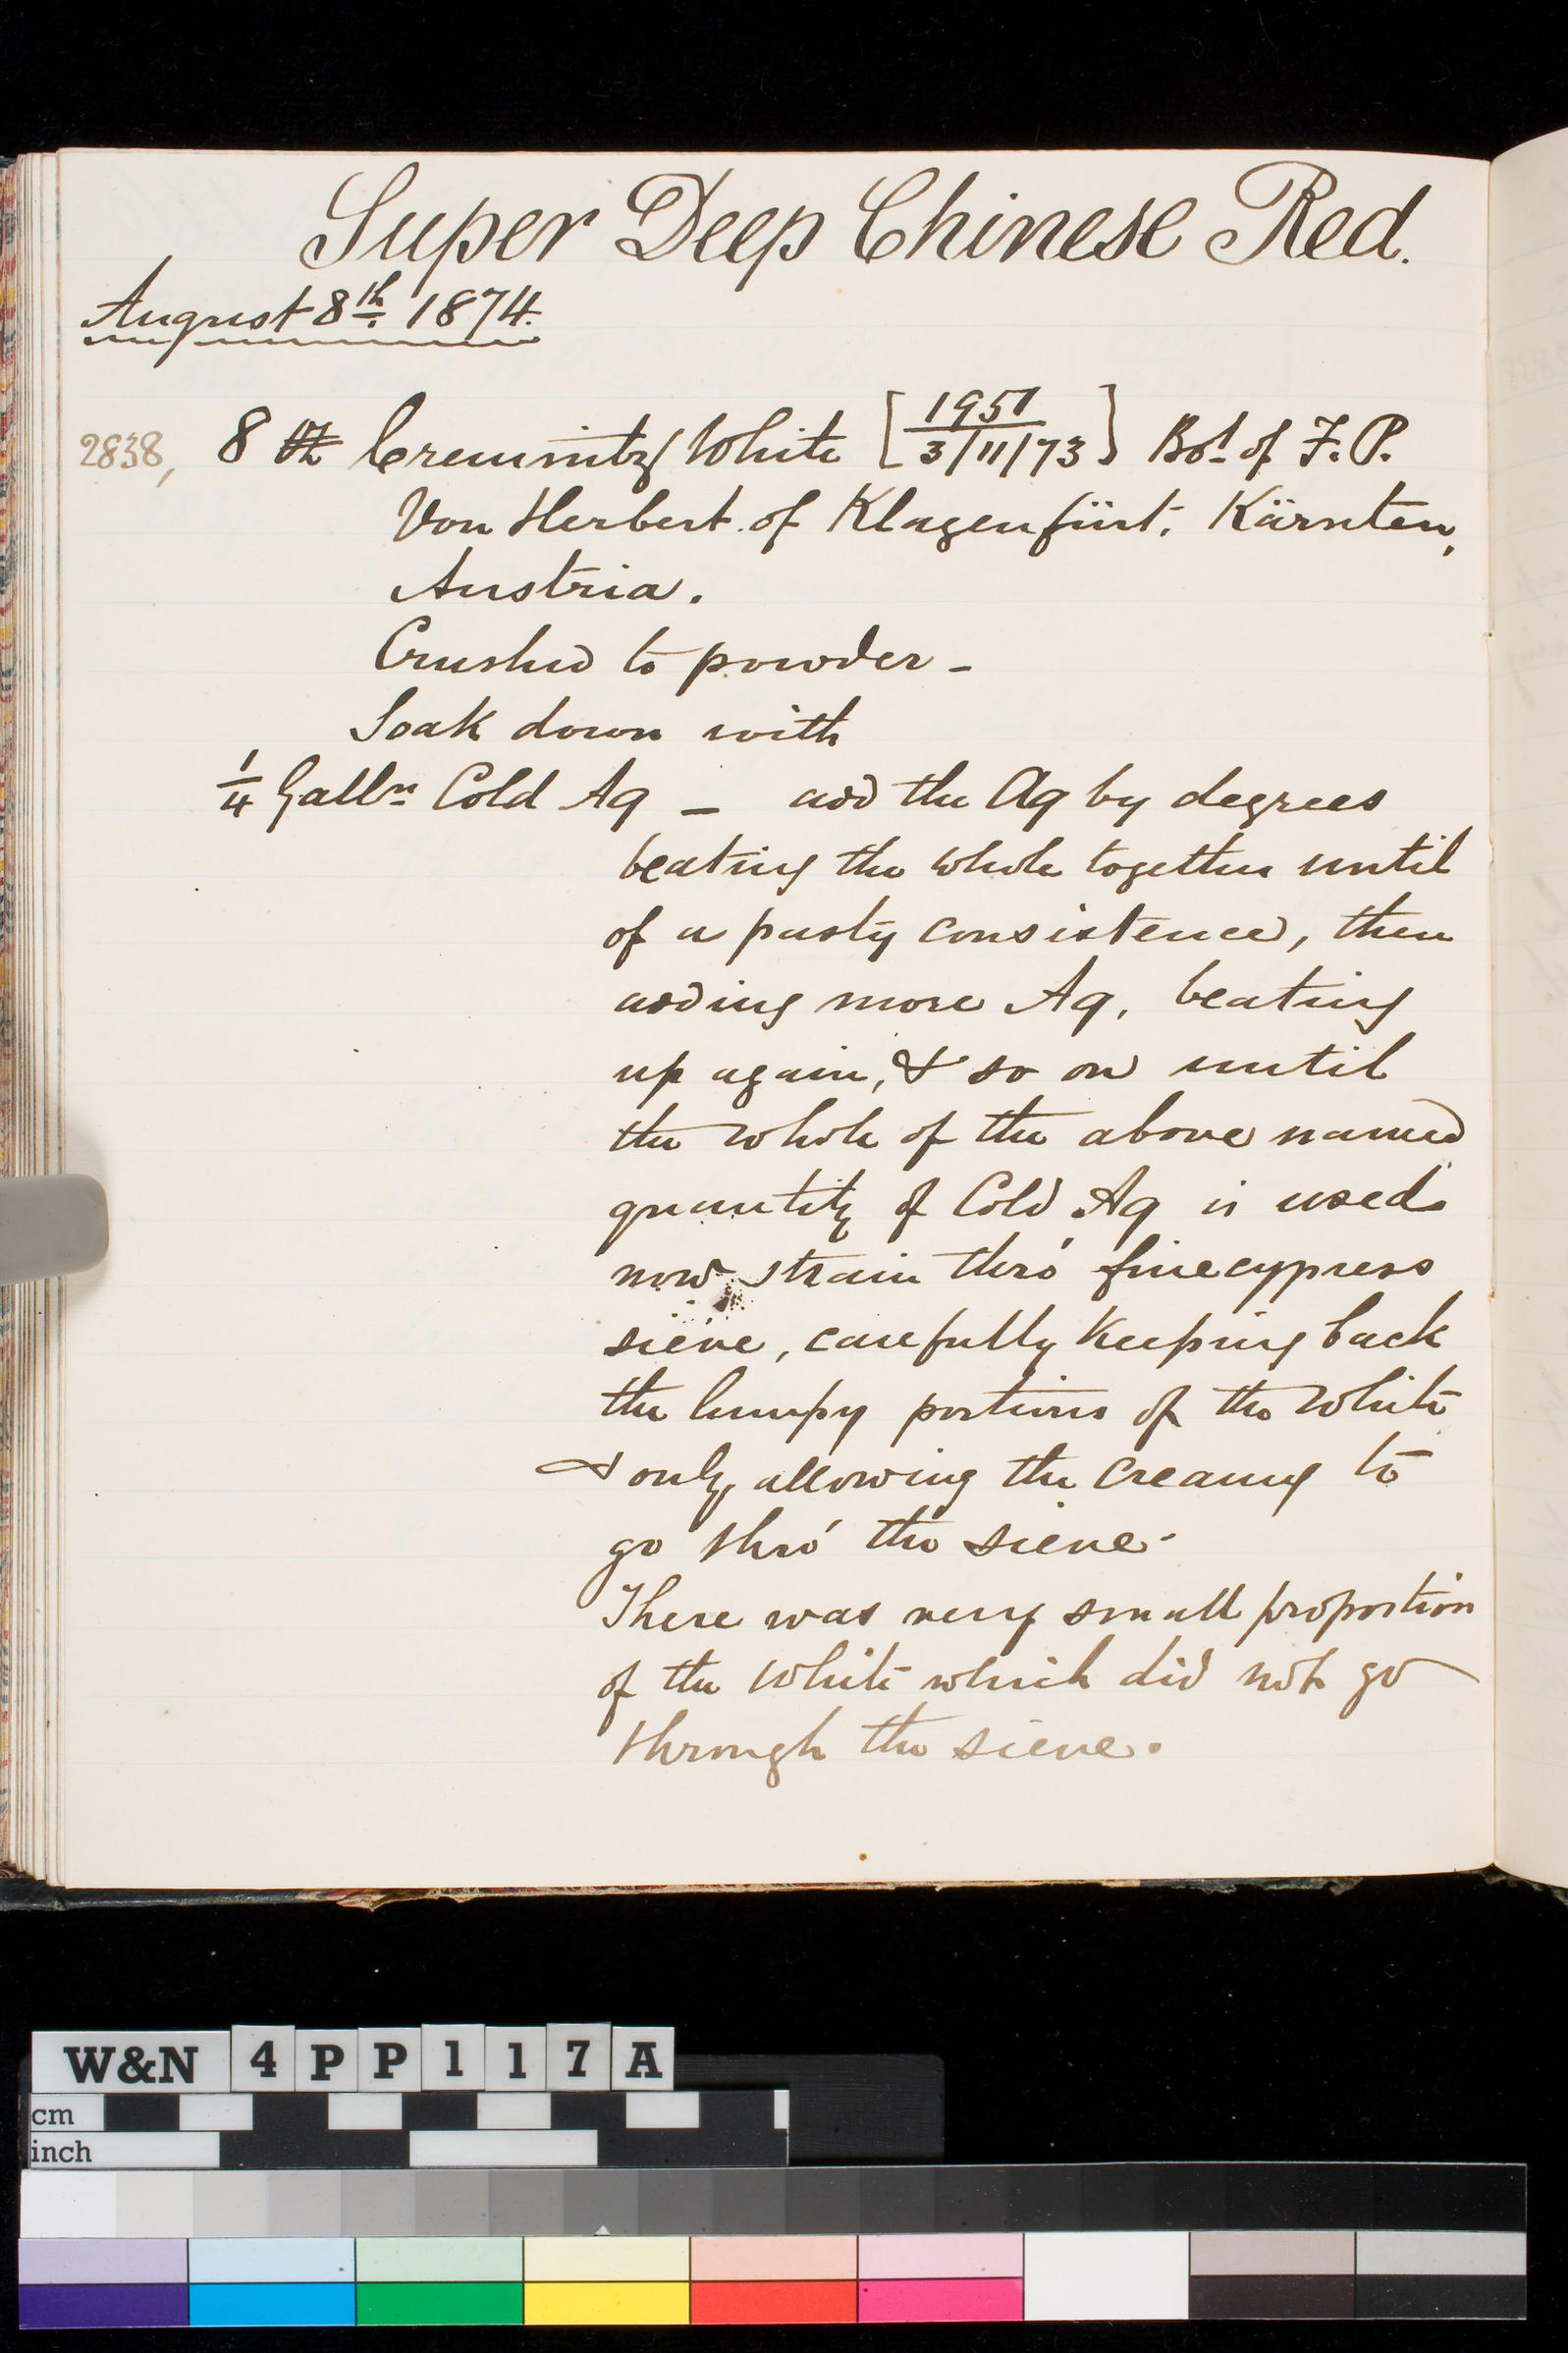 Super Deep Chinese Red.
August 8th. 1874.
2838, 8 lb Cremnitz White [1951 3/11/73] Bot. of F. P.
Von Herbert of Klagenfürt. Kärnten,
Austria.
Crushed to powder -
Soak down with
1/4 Galln Cold Aq - add the Aq by degrees
beating the whole together until
of a pasty consistence, then
adding more Aq, beating
up again, & so on until
the whole of the above named
quantity of Cold Aq is used
now strain thro' fine cypress
sieve, carefully keeping back
the lumpy portions of the White
& only allowing the creamy to
go thro' the sieve.
There was very small proportion
of the White which did not go
through the sieve.
W&N 4PP117A
cm
inch